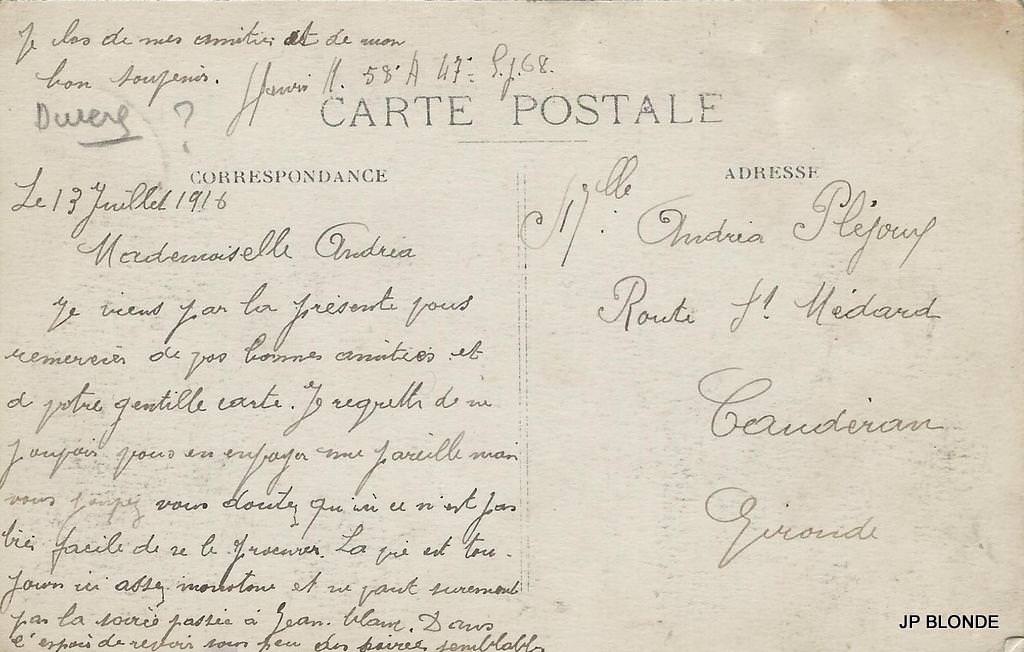 Je clos de mes amitiés et de mon
bon souvenir. Henri H. 58e A 47e S.P. 68.
Duverg ?
CARTE POSTALE
CORRESPONDANCE
Le 13 Juillet 1916
Mademoiselle Andréa
Je viens par la présente vous
remercier de vos bonnes amitiés et
d votre gentille carte. Je regrette de ne
pouvoir vous en envoyer une pareille mais
vous doutez qu'ici ce n'est pas
très facile de se le procurer. La vie est tou-
jours ici assez monotone et ne vaut surement
pas la soirée passée à Jean-blanc. Dans
l'espoir de revoir sous peu des soirées semblables
ADRESSE
Mlle. Andréa Pléjoux
Route St Médard
Caudéran
Gironde
JP BLONDE